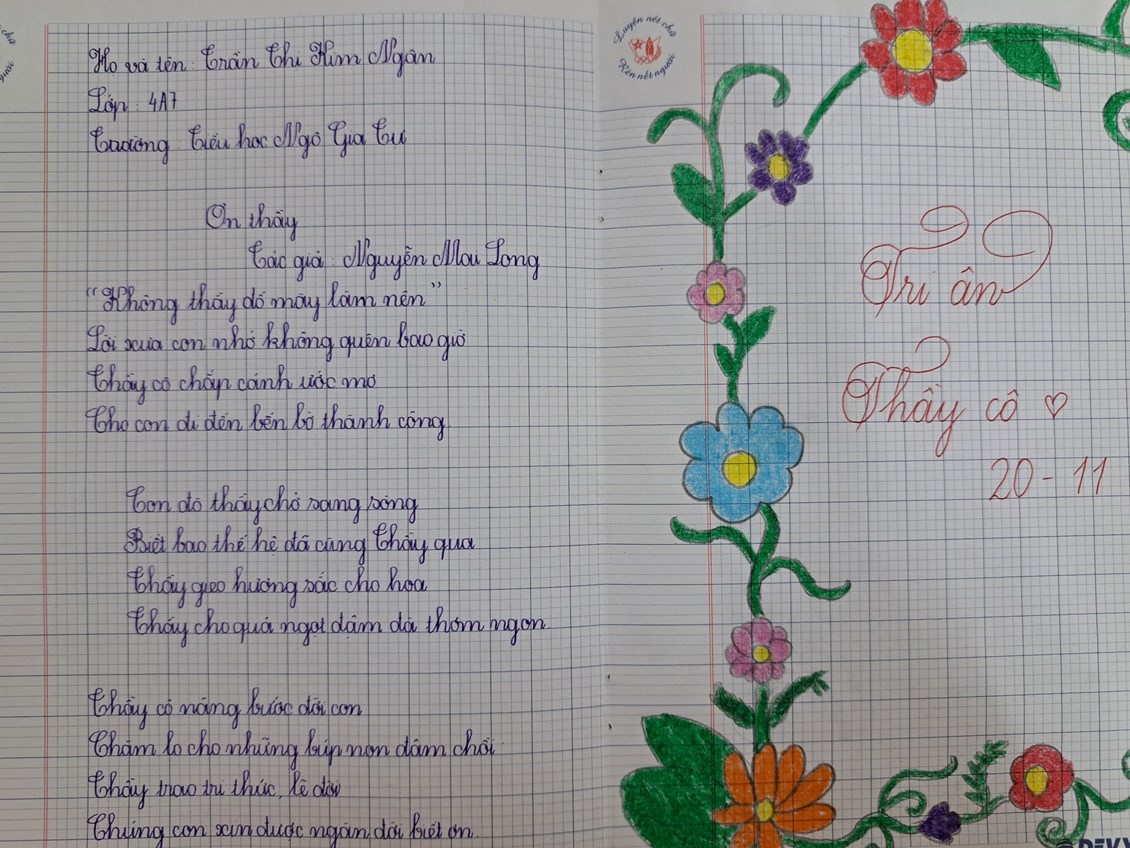 Họ và tên: Trần Thị Kim Ngân
Lớp: 4A7
Trường: Tiểu học Ngô Gia Tự
Ơn thầy
Tác giả: Nguyễn Mau Long
"Không thầy đố mày làm nên"
Lời xưa con nhớ không quên bao giờ
Thầy cô chắp cánh ước mơ
Cho con đi đến bến bờ thành công
Con đò thầy chở sang sông
Biết bao thế hệ đã cùng thầy qua
Thầy gieo hương sắc cho hoa
Thầy cho quả ngọt đậm đà thơm ngon.
Thầy cô nâng bước đời con
Chăm lo cho những búp non đâm chồi
Thầy trao tri thức, lẽ đời
Chúng con xin được ngàn đời biết ơn.
Luyện nét chữ
Rèn nết người
Tri ân
Thầy cô ♡
20 - 11